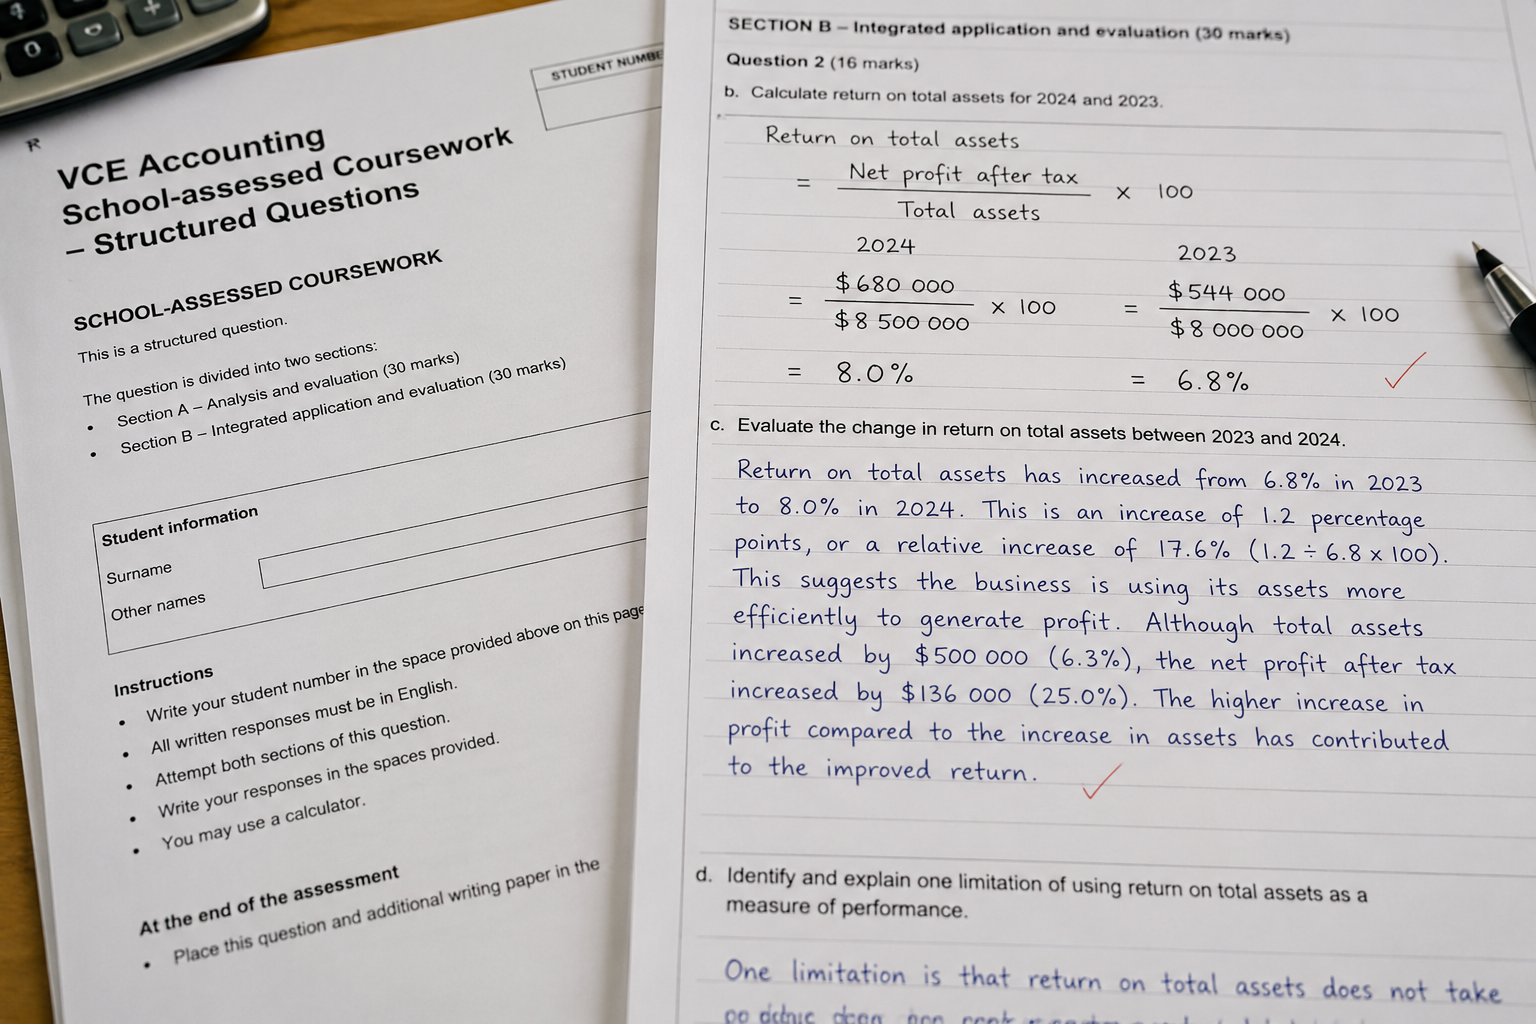 STUDENT NUMBE
VCE Accounting
School-assessed Coursework
– Structured Questions
SCHOOL-ASSESSED COURSEWORK
This is a structured question.
The question is divided into two sections:
• Section A – Analysis and evaluation (30 marks)
• Section B – Integrated application and evaluation (30 marks)
Student information
Surname
Other names
Instructions
• Write your student number in the space provided above on this page
• All written responses must be in English.
• Attempt both sections of this question.
• Write your responses in the spaces provided.
• You may use a calculator.
At the end of the assessment
• Place this question and additional writing paper in the
SECTION B – Integrated application and evaluation (30 marks)
Question 2 (16 marks)
b. Calculate return on total assets for 2024 and 2023.
Return on total assets
= Net profit after tax × 100
Total assets
2024 2023
= $680 000 × 100 = $544 000 × 100
$8 500 000 $8 000 000
= 8.0% = 6.8%
c. Evaluate the change in return on total assets between 2023 and 2024.
Return on total assets has increased from 6.8% in 2023
to 8.0% in 2024. This is an increase of 1.2 percentage
points, or a relative increase of 17.6% (1.2 ÷ 6.8 x 100).
This suggests the business is using its assets more
efficiently to generate profit. Although total assets
increased by $500 000 (6.3%), the net profit after tax
increased by $136 000 (25.0%). The higher increase in
profit compared to the increase in assets has contributed
to the improved return.
d. Identify and explain one limitation of using return on total assets as a
measure of performance.
One limitation is that return on total assets does not take